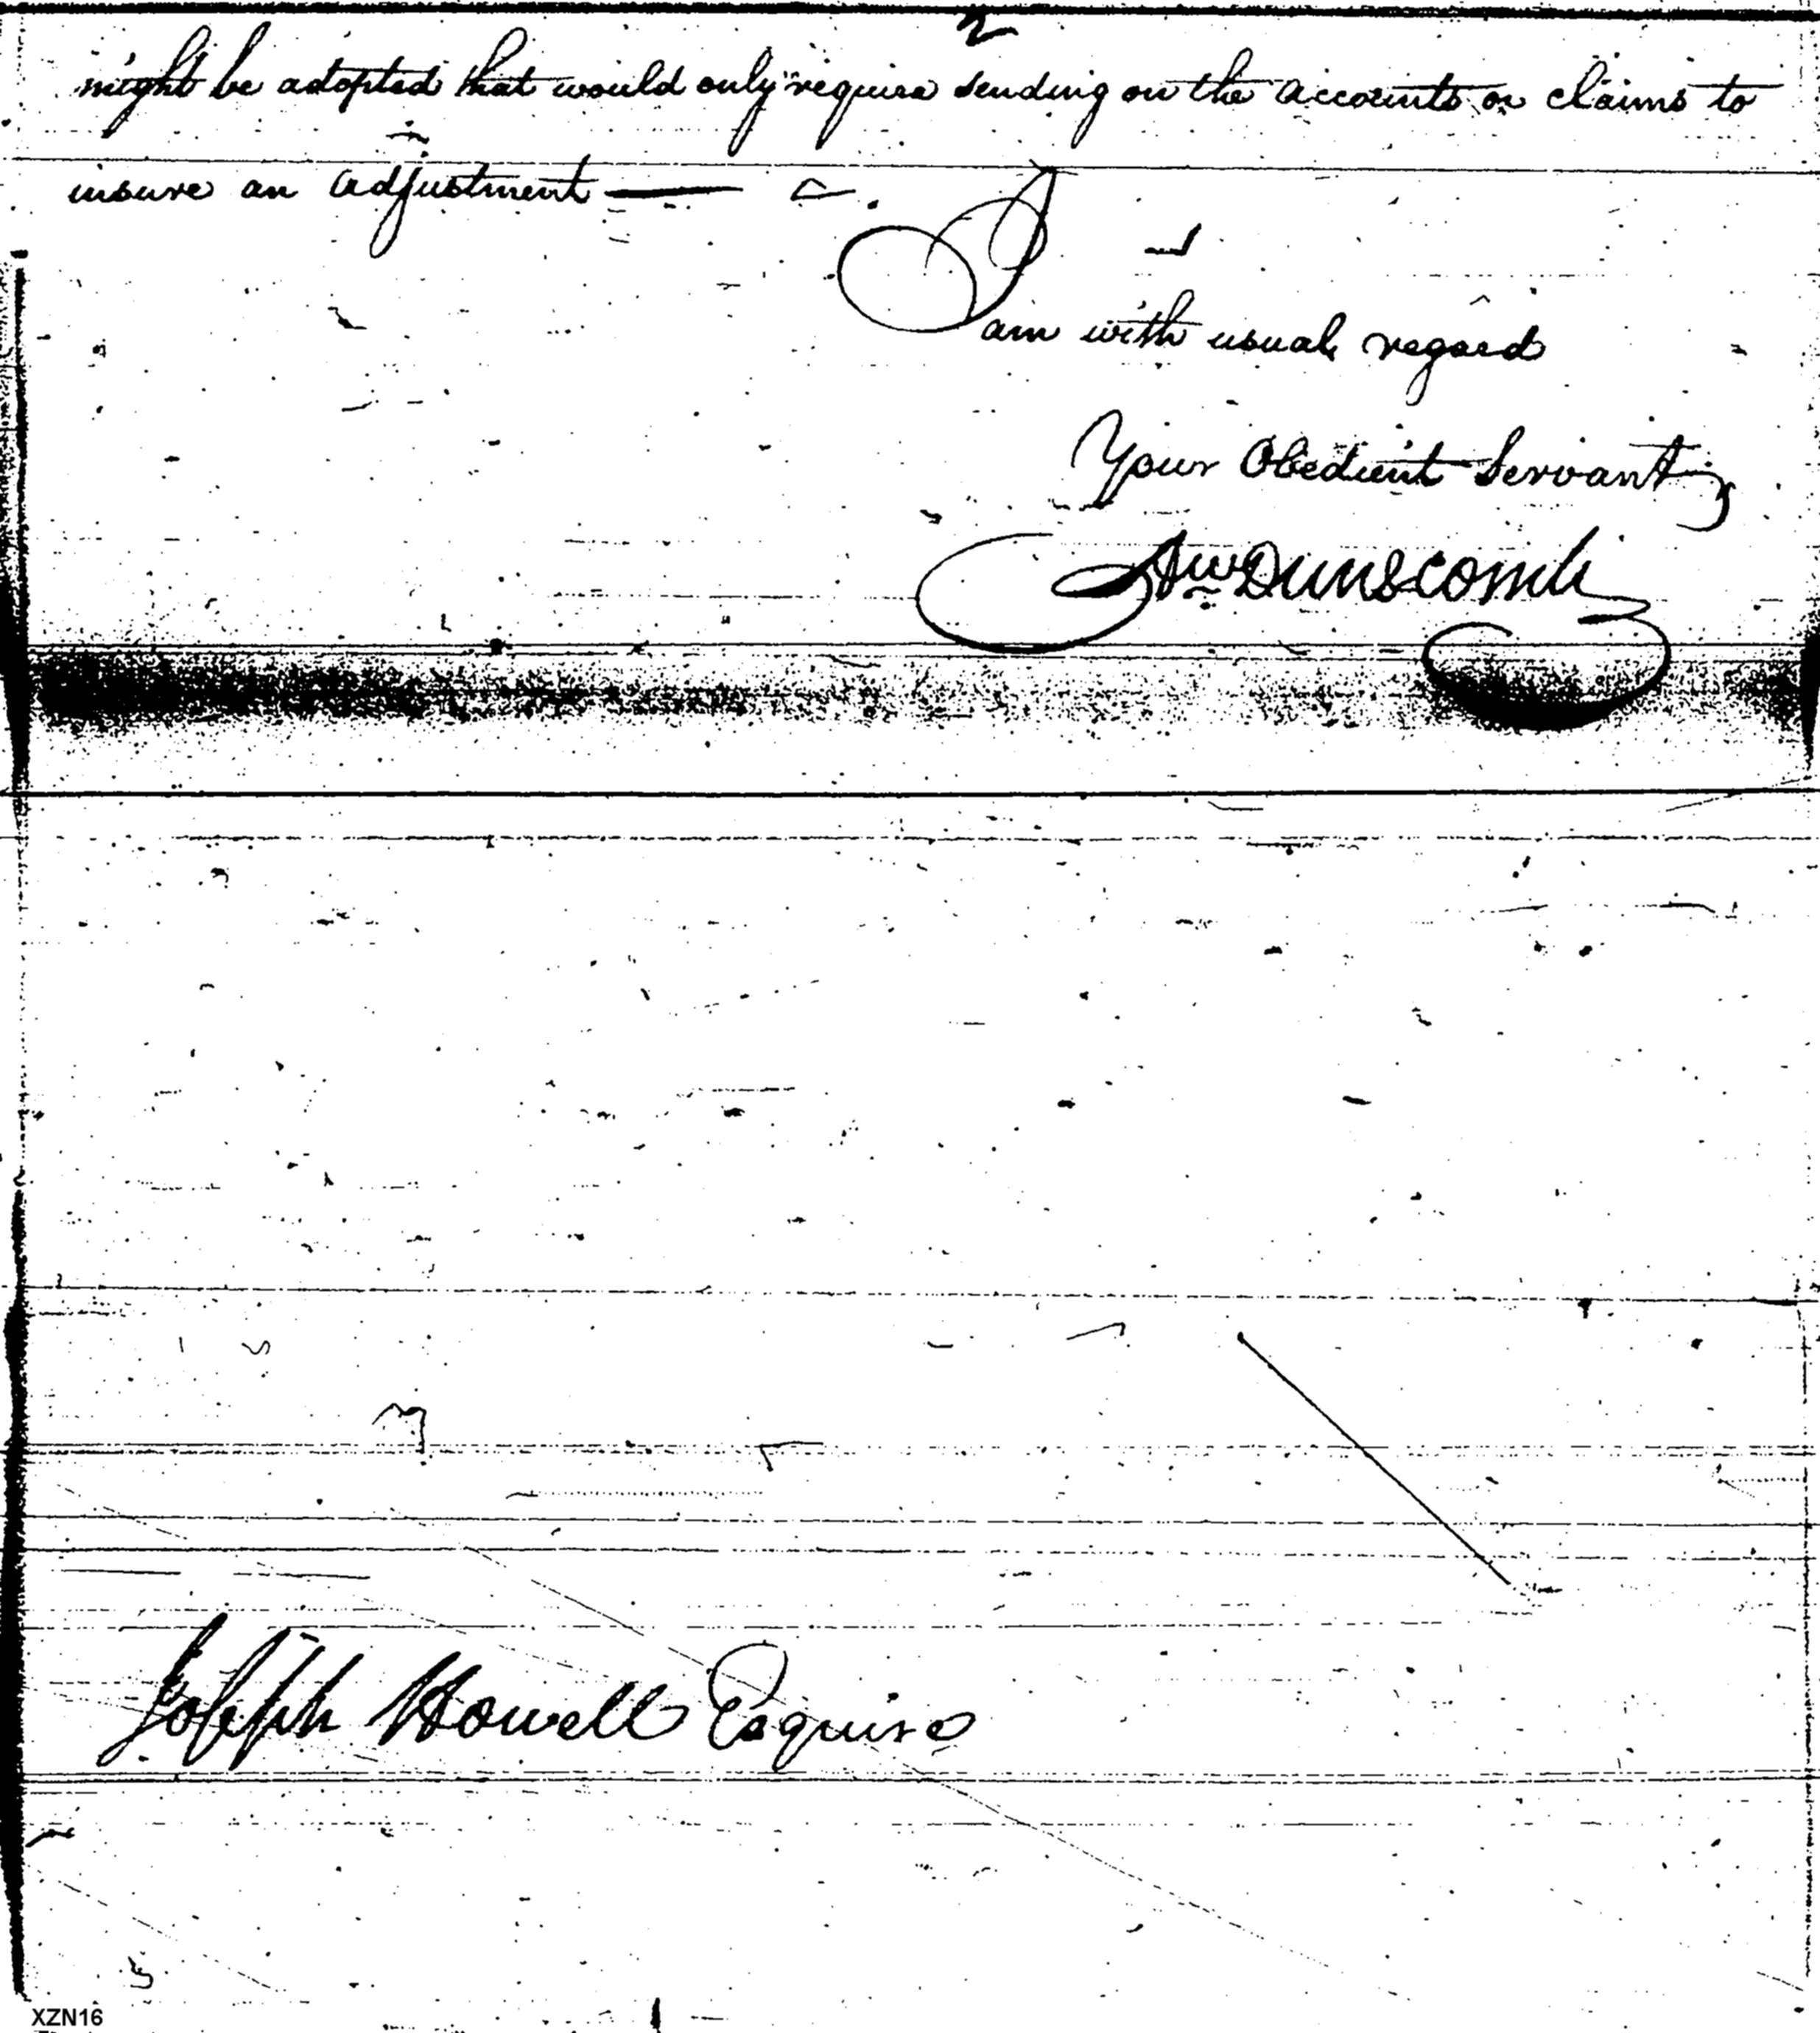 2
might be adopted that would only require sending on the accounts or claims to
insure an adjustment
I
am with usual regard
Your Obedient Servant
Aw Dunscomb
Joseph Howell Esquire
XZN16